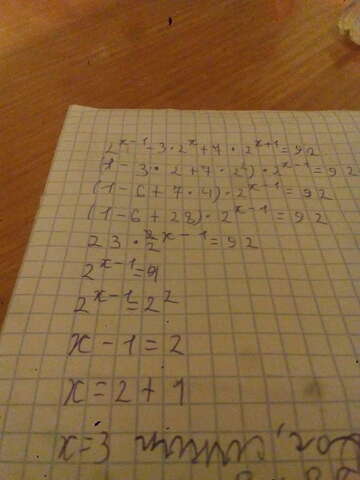 2^{x-1}-3·2^x+7·2^{x+1}=92
(1-3·2+7·2^2)·2^{x-1}=92
(1-6+7·4)·2^{x-1}=92
(1-6+28)·2^{x-1}=92
23·2^{x-1}=92
2^{x-1}=4
2^{x-1}=2^2
x-1=2
x=2+1
x=3